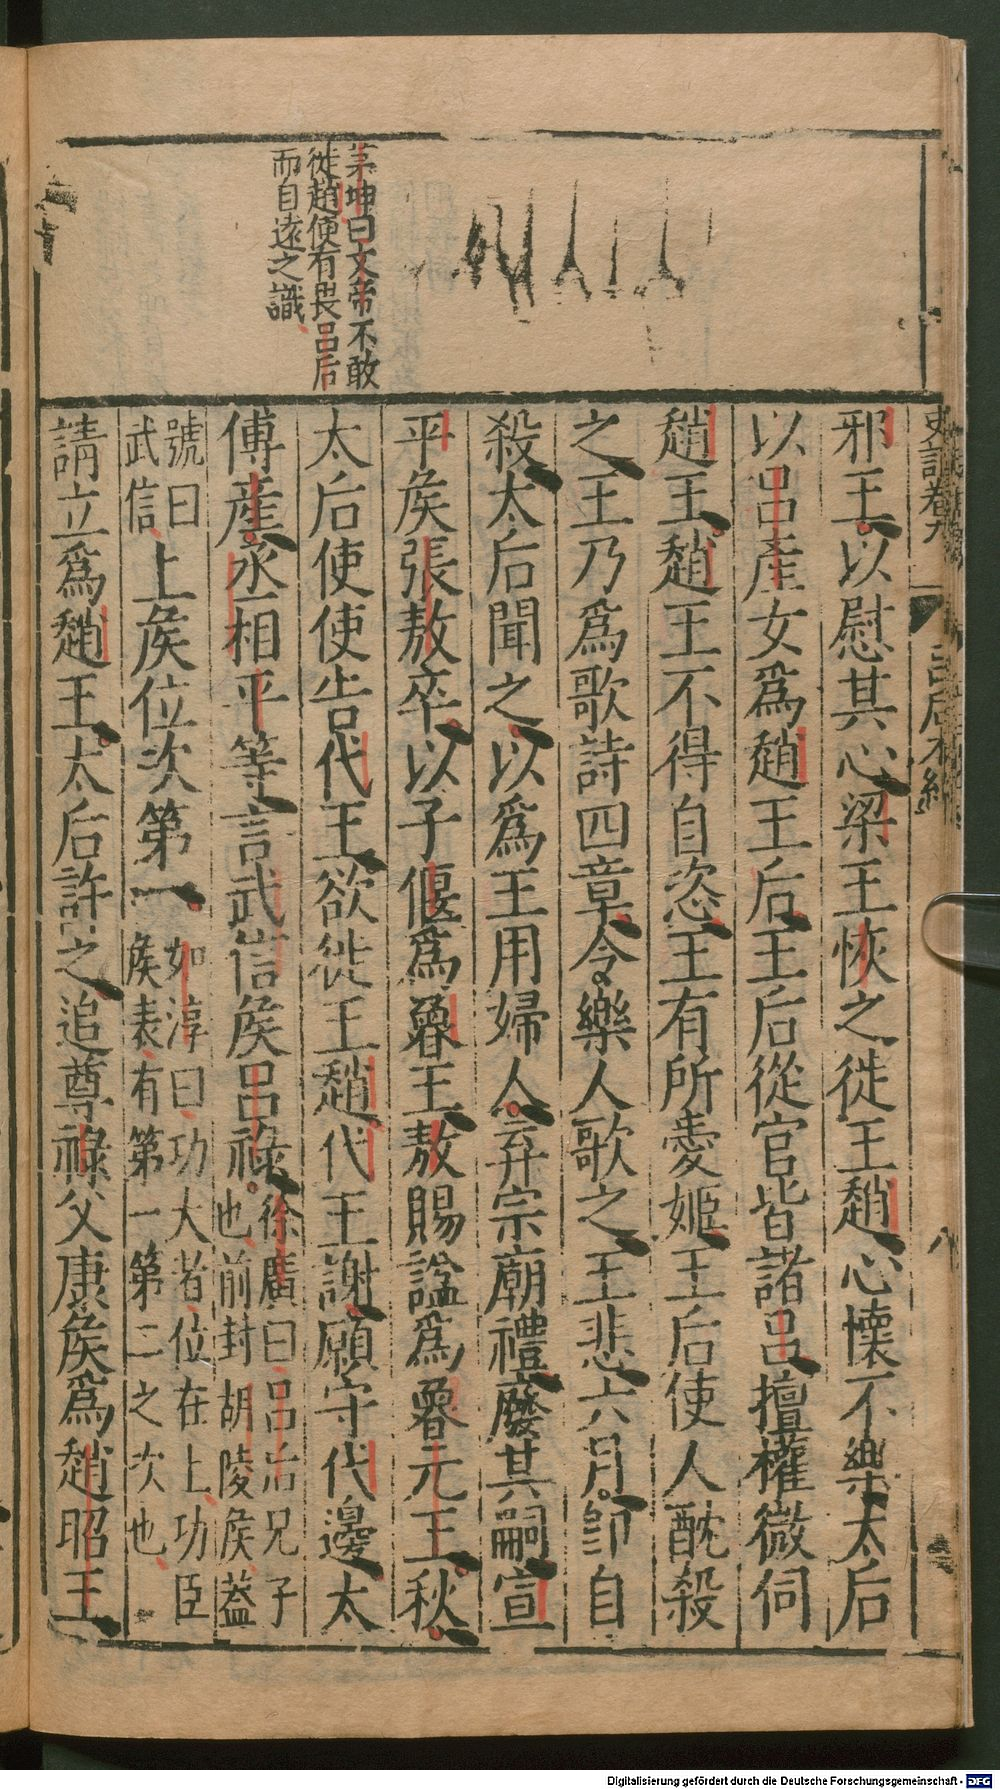 史記卷九 呂后本紀 八
邪王以慰其心梁王恢之徙王趙心懷不樂太后
以呂產女爲趙王后王后從官皆諸呂擅權微伺
趙王趙王不得自恣王有所愛姬王后使人酖殺
之王乃爲歌詩四章令樂人歌之王悲六月卽自
殺太后聞之以爲王用婦人弃宗廟禮廢其嗣宣
平侯張敖卒以子偃爲魯王敖賜諡爲魯元王秋
茅坤曰文帝不敢
徙趙使有畏呂后
而自遠之識
太后使使告代王欲徙王趙代王謝願守代邊太
傅產丞相平等言武信侯呂祿徐廣曰呂后兄子也前封胡陵侯蓋
號曰武信上侯位次第一如淳曰功大者位在上功臣侯表有第一第二之次也
請立爲趙王太后許之追尊祿父康侯爲趙昭王
Digitalisierung gefördert durch die Deutsche Forschungsgemeinschaft - DFG